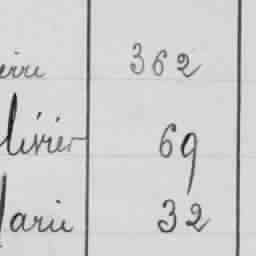 erre 362
livier 69
arie 32